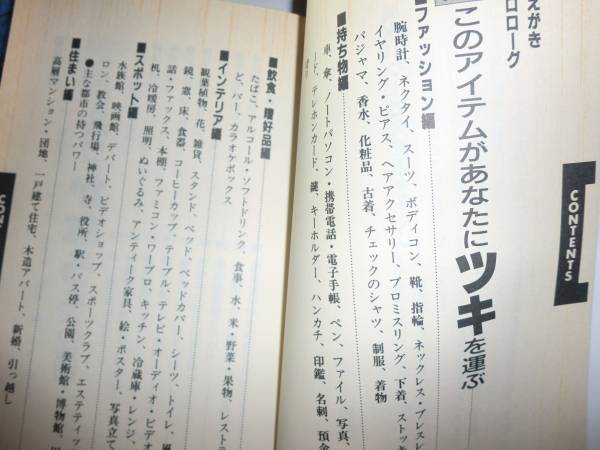 えがき
ロローグ
CONTENTS
このアイテムがあなたにツキを運ぶ
■ファッション編
腕時計、ネクタイ、スーツ、ボディコン、靴、指輪、ネックレス・ブレスレ
イヤリング・ピアス、ヘアアクセサリー、プロミスリング、下着、ストッキ
パジャマ、香水、化粧品、古着、チェックのシャツ、制服、着物
■持ち物編
車、傘、ノートパソコン・携帯電話・電子手帳、ペン、ファイル、写真、
ード、テレホンカード、鍵、キーホルダー、ハンカチ、印鑑、名刺、預金
■飲食・嗜好品編
たばこ、アルコール・ソフトドリンク、食事、水、米・野菜・果物、レストラ
ど、バー、カラオケボックス
■インテリア編
観葉植物、花、雑貨、スタンド、ベッド、ベッドカバー、シーツ、トイレ、風
鏡、窓、床、食器、コーヒーカップ、テーブル、テレビ・オーディオ・ビデオ
話・ファックス、本棚、ファミコン・ワープロ、キッチン、冷蔵庫・レンジ、
机、冷暖房、照明、ぬいぐるみ、アンティーク家具、絵・ポスター、写真立て
■スポット編
水族館、映画館、デパート、ビデオショップ、スポーツクラブ、エステティッ
ロン、教会、飛行場、神社、寺、役所、駅・バス停、公園、美術館・博物館、
●主な都市の持つパワー
■住まい編
高層マンション・団地、一戸建て住宅、木造アパート、新婚、引っ越し
CONT